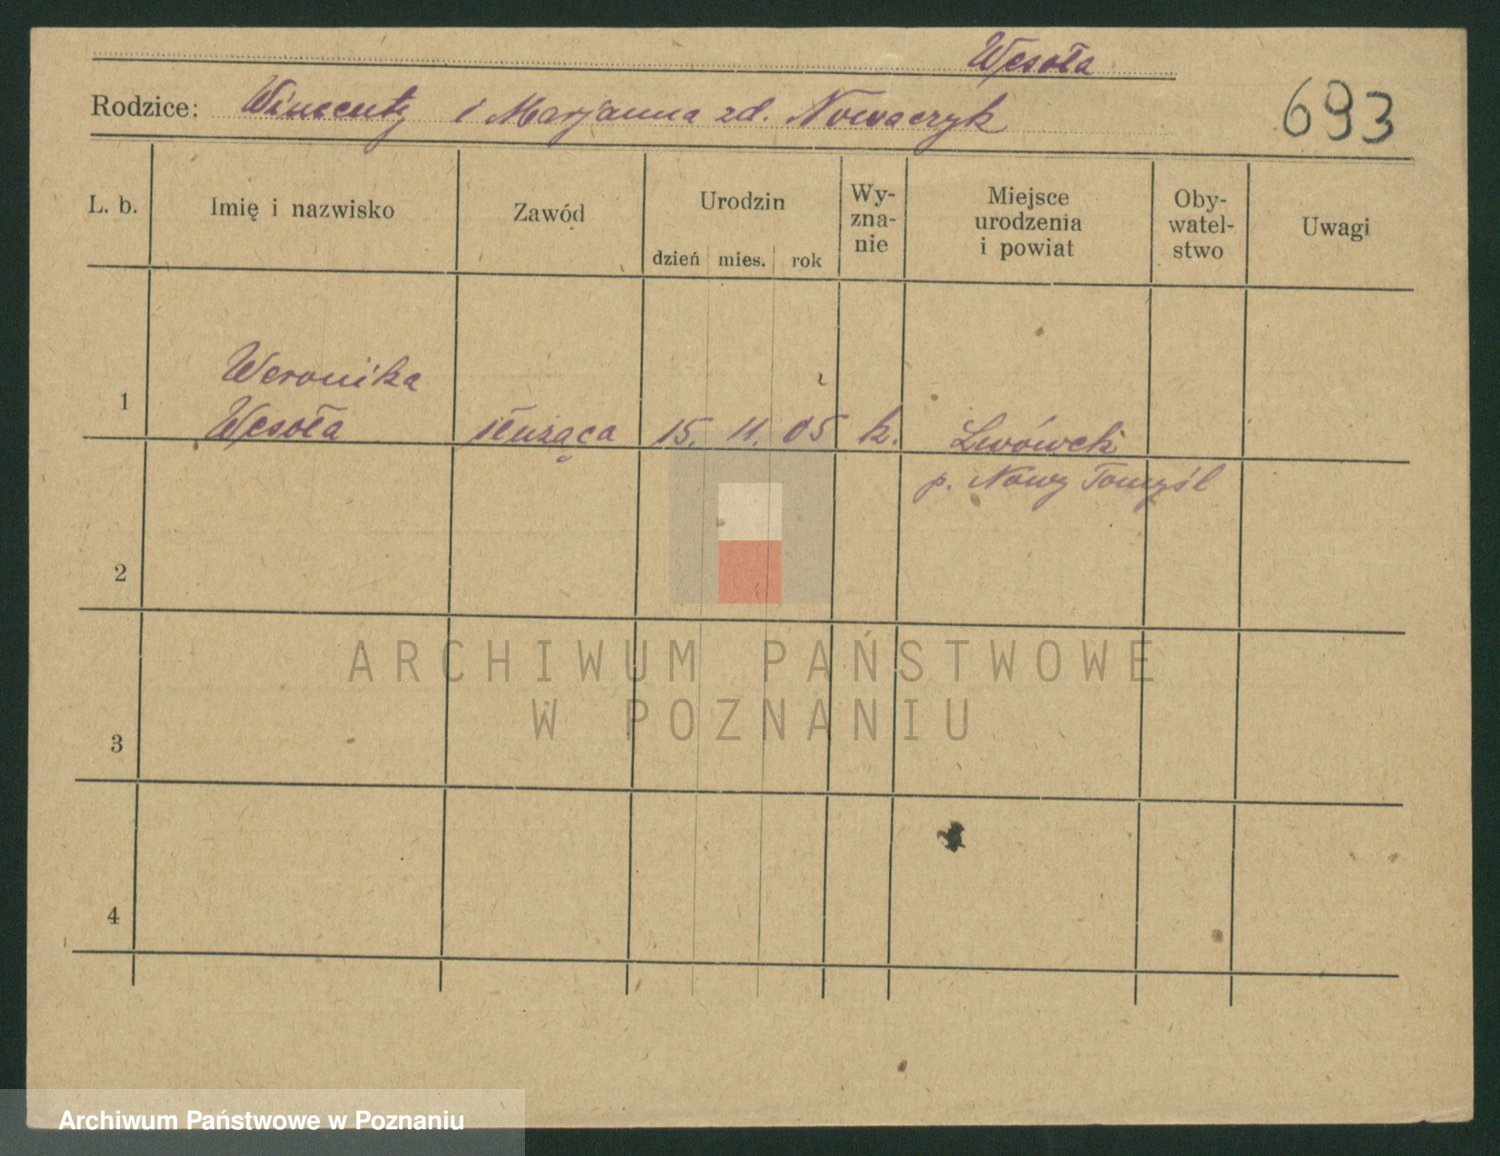 Wesoła
Rodzice: Wincenty i Marjanna zd. Nowaczyk
693
L. b.
Imię i nazwisko
Zawód
Urodzin
dzień mies. rok
Wy-
zna-
nie
Miejsce
urodzenia
i powiat
Oby-
watel-
stwo
Uwagi
Weronika
1 Wesoła służąca 15. 11. 05 k. Lwówek
p. Nowy Tomyśl
2
3
4
ARCHIWUM PAŃSTWOWE
W POZNANIU
Archiwum Państwowe w Poznaniu